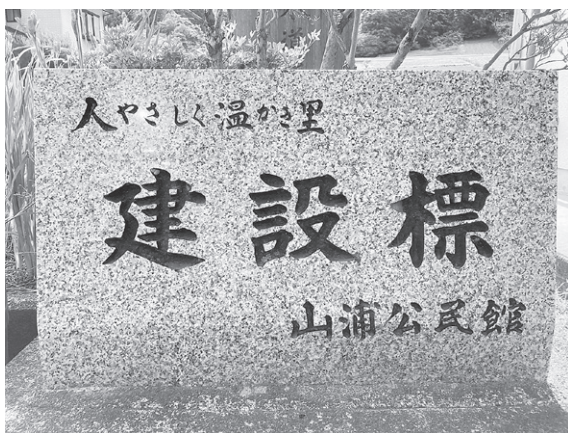 人やさしく温かき里
建設標
山浦公民館